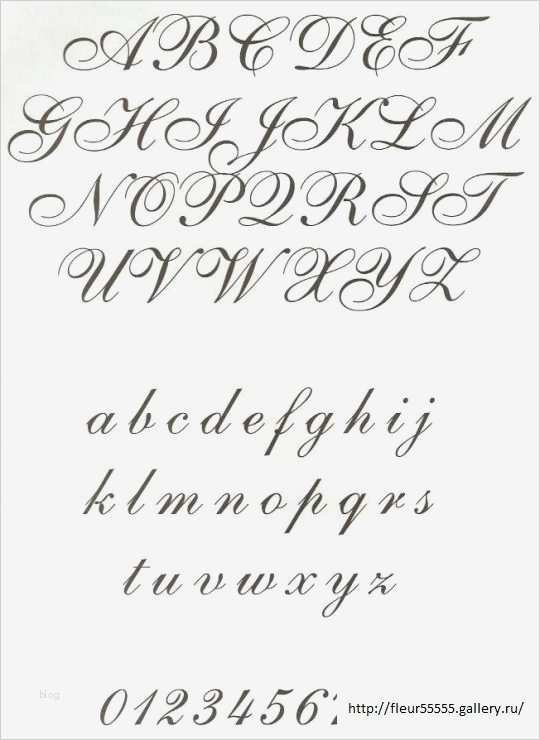 ABCDEF
GHIJKLM
NOPQRST
UVWXYZ
abcdefghij
klmnopqrs
tuvwxyz
blog
0123456
http://fleur55555.gallery.ru/